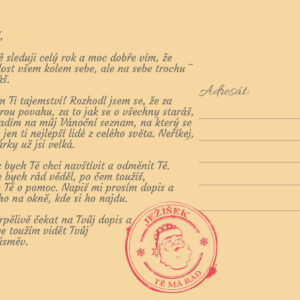 ,
ě sleduji celý rok a moc dobře vím, že
dost všem kolem sebe, ale na sebe trochu
áš.
m Ti tajemství! Rozhodl jsem se, že za
rou povahu, za to jak se o všechny staráš,
adím na můj Vánoční seznam, na který se
jen ti nejlepší lidé z celého světa. Neříkej,
árky už jsi velká.
bych Tě chci navštívit a odměnit Tě.
e bych rád věděl, po čem toužíš,
Tě o pomoc. Napiš mi prosím dopis a
ho na okně, kde si ho najdu.
rpělivě čekat na Tvůj dopis a
e toužím vidět Tvůj
úsměv.
Adresát:
JEŽÍŠEK
TĚ MÁ RÁD